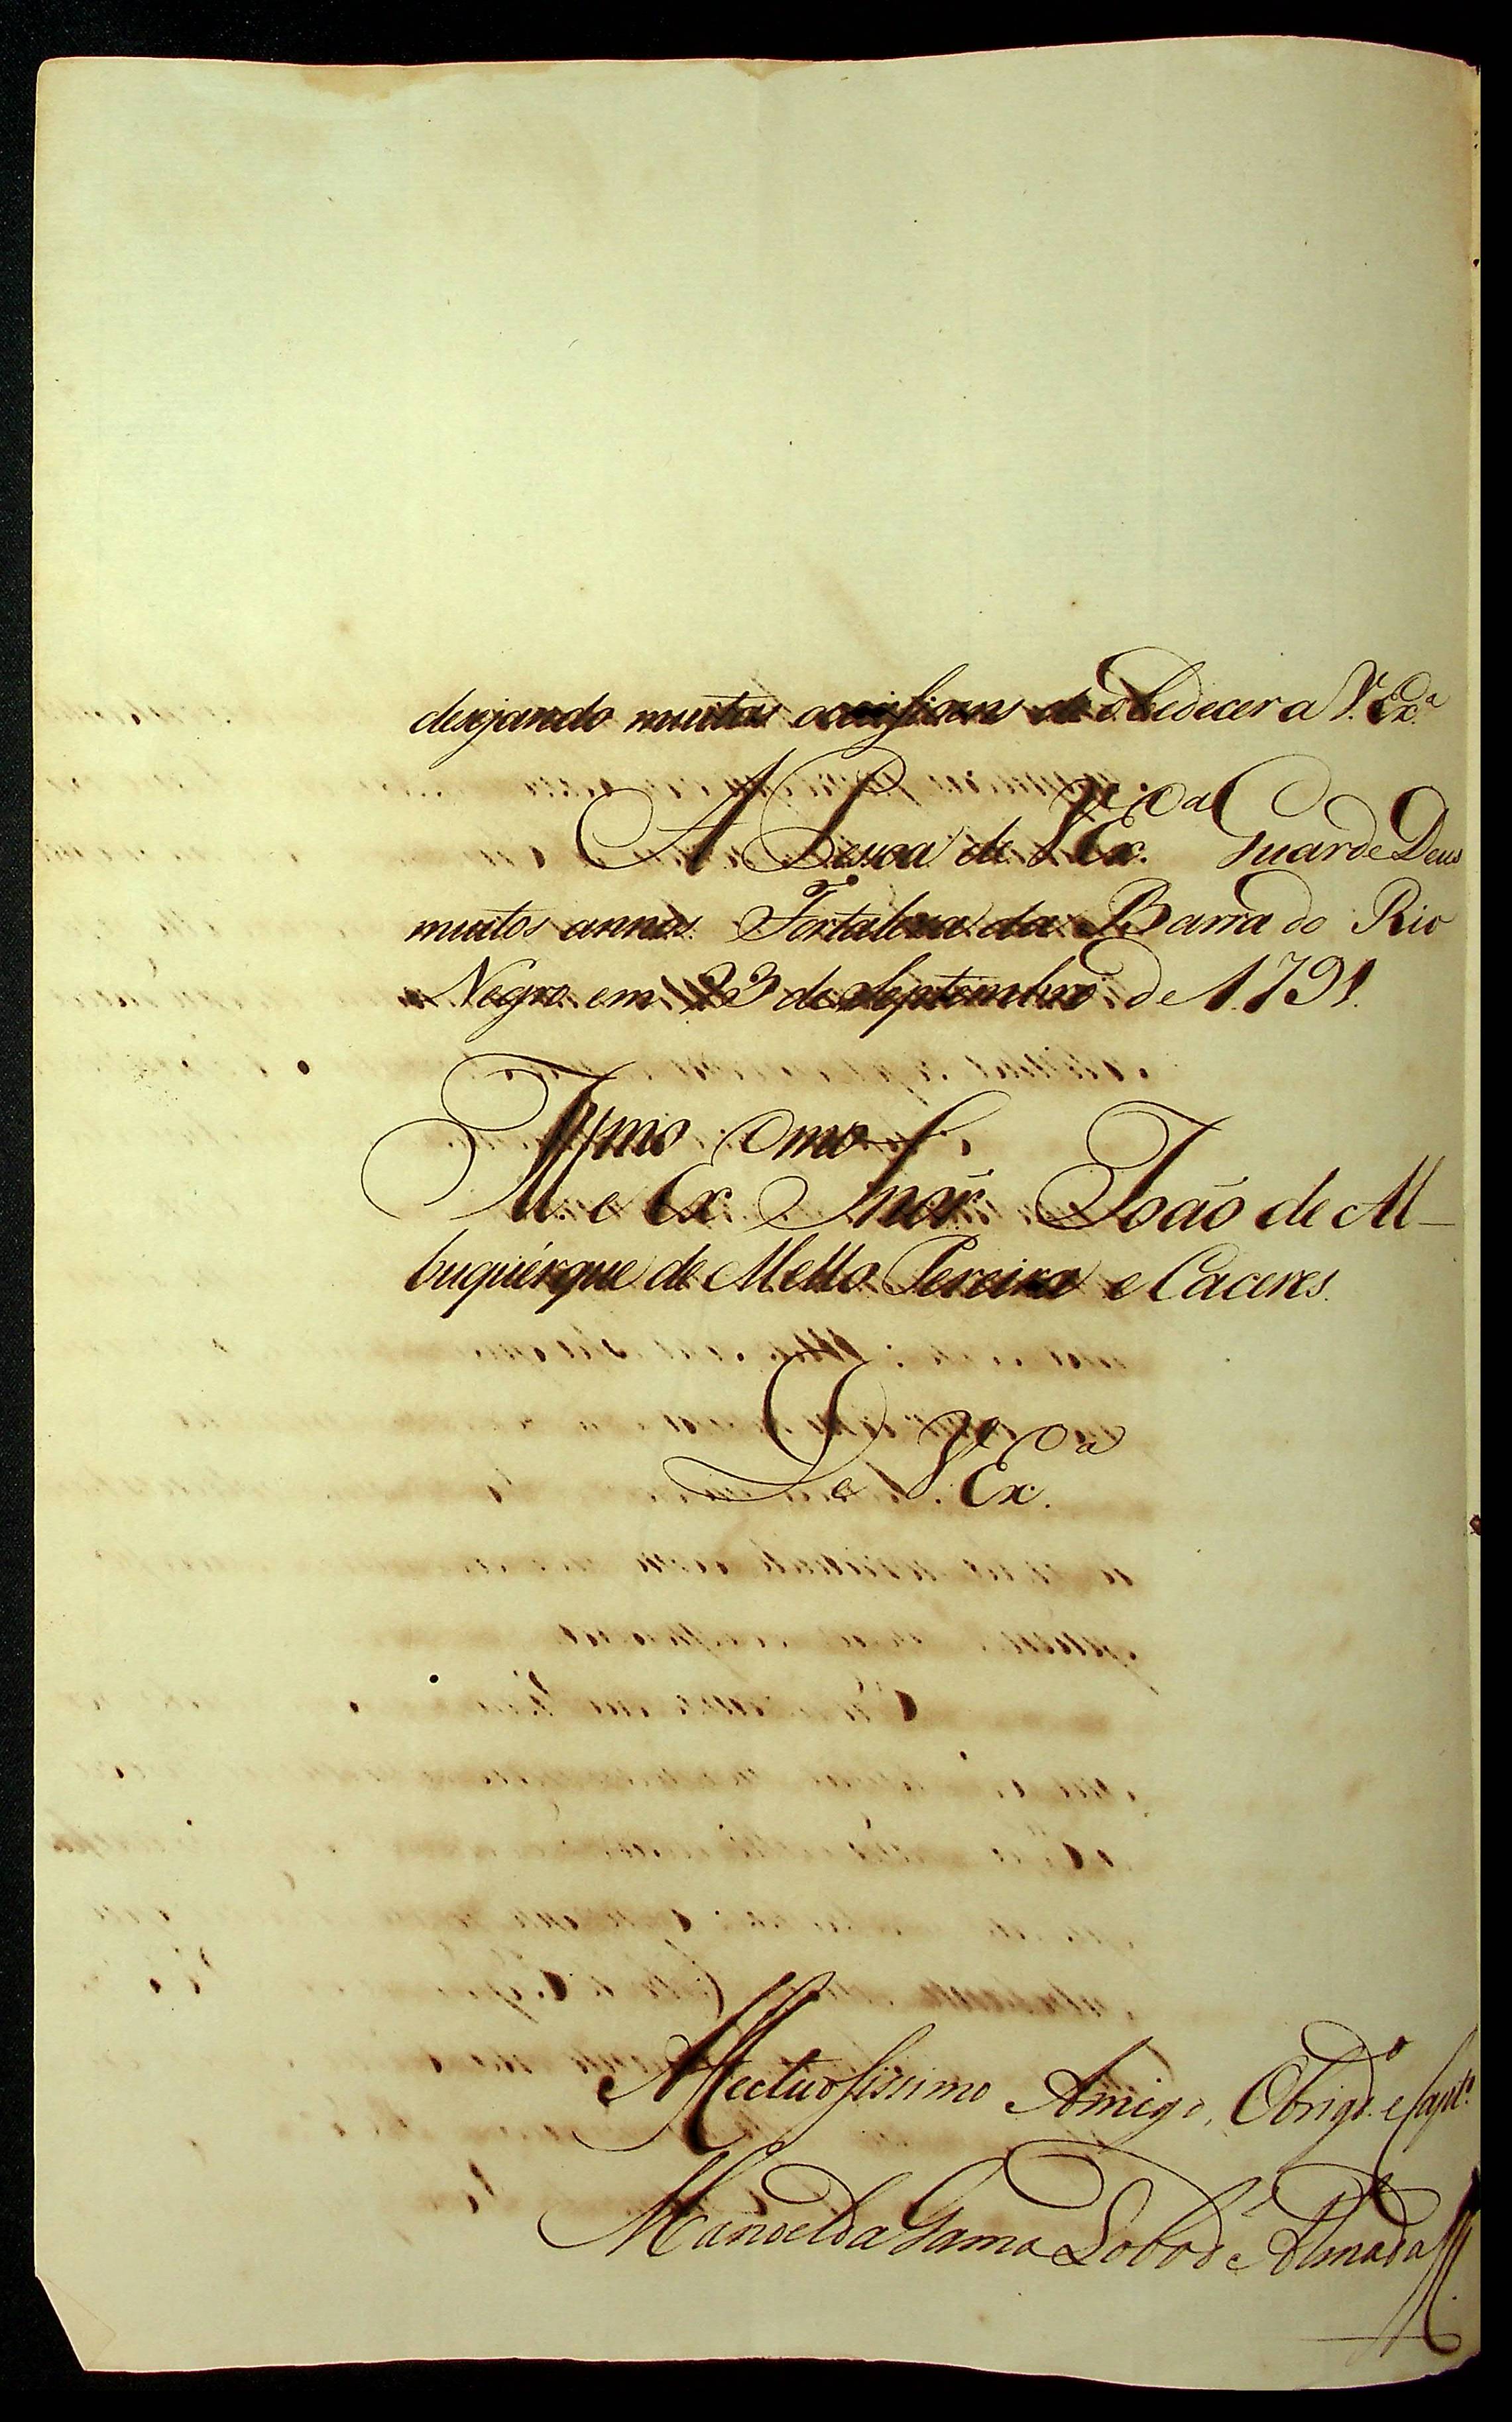 dezejando muitas occasioens de obedecer a V. Ex.ª
A Pessoa de V. Ex.ª Guarde Deus
muitos annos. Fortaleza da Barra do Rio
Negro em 23 de Septembro de 1791.
Ill.mo e Ex.mo Snõr. João de Al-
buquérque de Mello Pereira e Caceres.
De V. Ex.ª
Affectuosissimo Amigo, Obrigd.º e Capt.º
Manoel da Gama Lobo de Almada